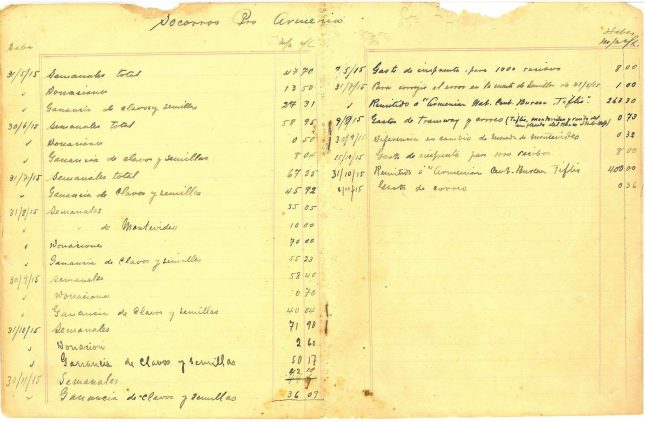 Socorros Pro Armenia
Debe
m/n c/l.
31/5/15 Semanales total 47 70
" Donaciones 13 50
" Ganancia de clavos y semillas 24 31
30/6/15 Semanales total 58 95
" Donaciones 0 50
" Ganancia de clavos y semillas 5 00
31/7/15 Semanales total 67 25
" Ganancia de clavos y semillas 45 92
31/8/15 Semanales 35 05
" " de Montevideo 10 00
" Donaciones 70 00
" Ganancia de clavos y semillas 55 23
30/9/15 Semanales 53 40
" Donaciones 0 70
" Ganancia de clavos y semillas 40 04
31/10/15 Semanales 71 90
" Donacion 2 60
" Ganancia de clavos y semillas 50 17
30/11/15 Semanales
" Ganancia de clavos y semillas 36 07
Haber
m/n c/l.
5/15 Gasto de imprenta por 1000 recibos 8 00
31/7/15 Para corregir el error en la cuenta de semillas de 1 00
" Remitido a "Armenian Nat. Cent. Bureau Tiflis" 263 30
9/8/15 Gastos de Tramway y correo (Tiflis, Montevideo y 0 73
30/9/15 Diferencia en cambio de moneda de Montevideo 0 32
15/10/15 Gasto de imprenta por 1000 recibos 8 00
31/10/15 Remitido a "Armenian Cent. Bureau Tiflis 400 00
/11/15 Gasto de correo 0 36